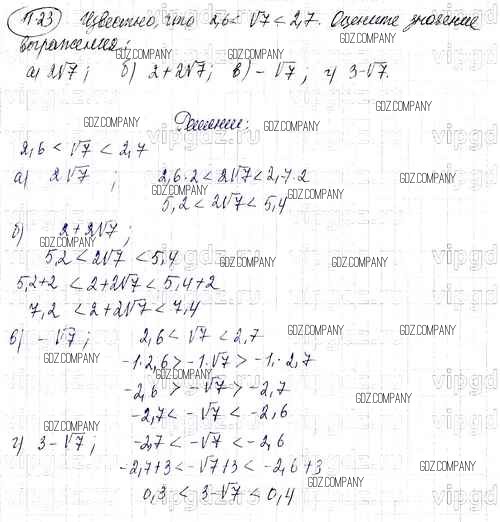 1.23 Известно, что 2,6 < √7 < 2,7. Оцените значение
выражения:
а) 2√7; б) 2+2√7; в) -√7; г) 3-√7.
Решение:
2,6 < √7 < 2,7
а) 2√7; 2,6·2 < 2√7 < 2,7·2
5,2 < 2√7 < 5,4
б) 2+2√7;
5,2 < 2√7 < 5,4
5,2+2 < 2+2√7 < 5,4+2
7,2 < 2+2√7 < 7,4
в) -√7; 2,6 < √7 < 2,7
-1·2,6 > -1·√7 > -1·2,7
-2,6 > -√7 > -2,7
-2,7 < -√7 < -2,6
г) 3-√7; -2,7 < -√7 < -2,6
-2,7+3 < -√7+3 < -2,6+3
0,3 < 3-√7 < 0,4